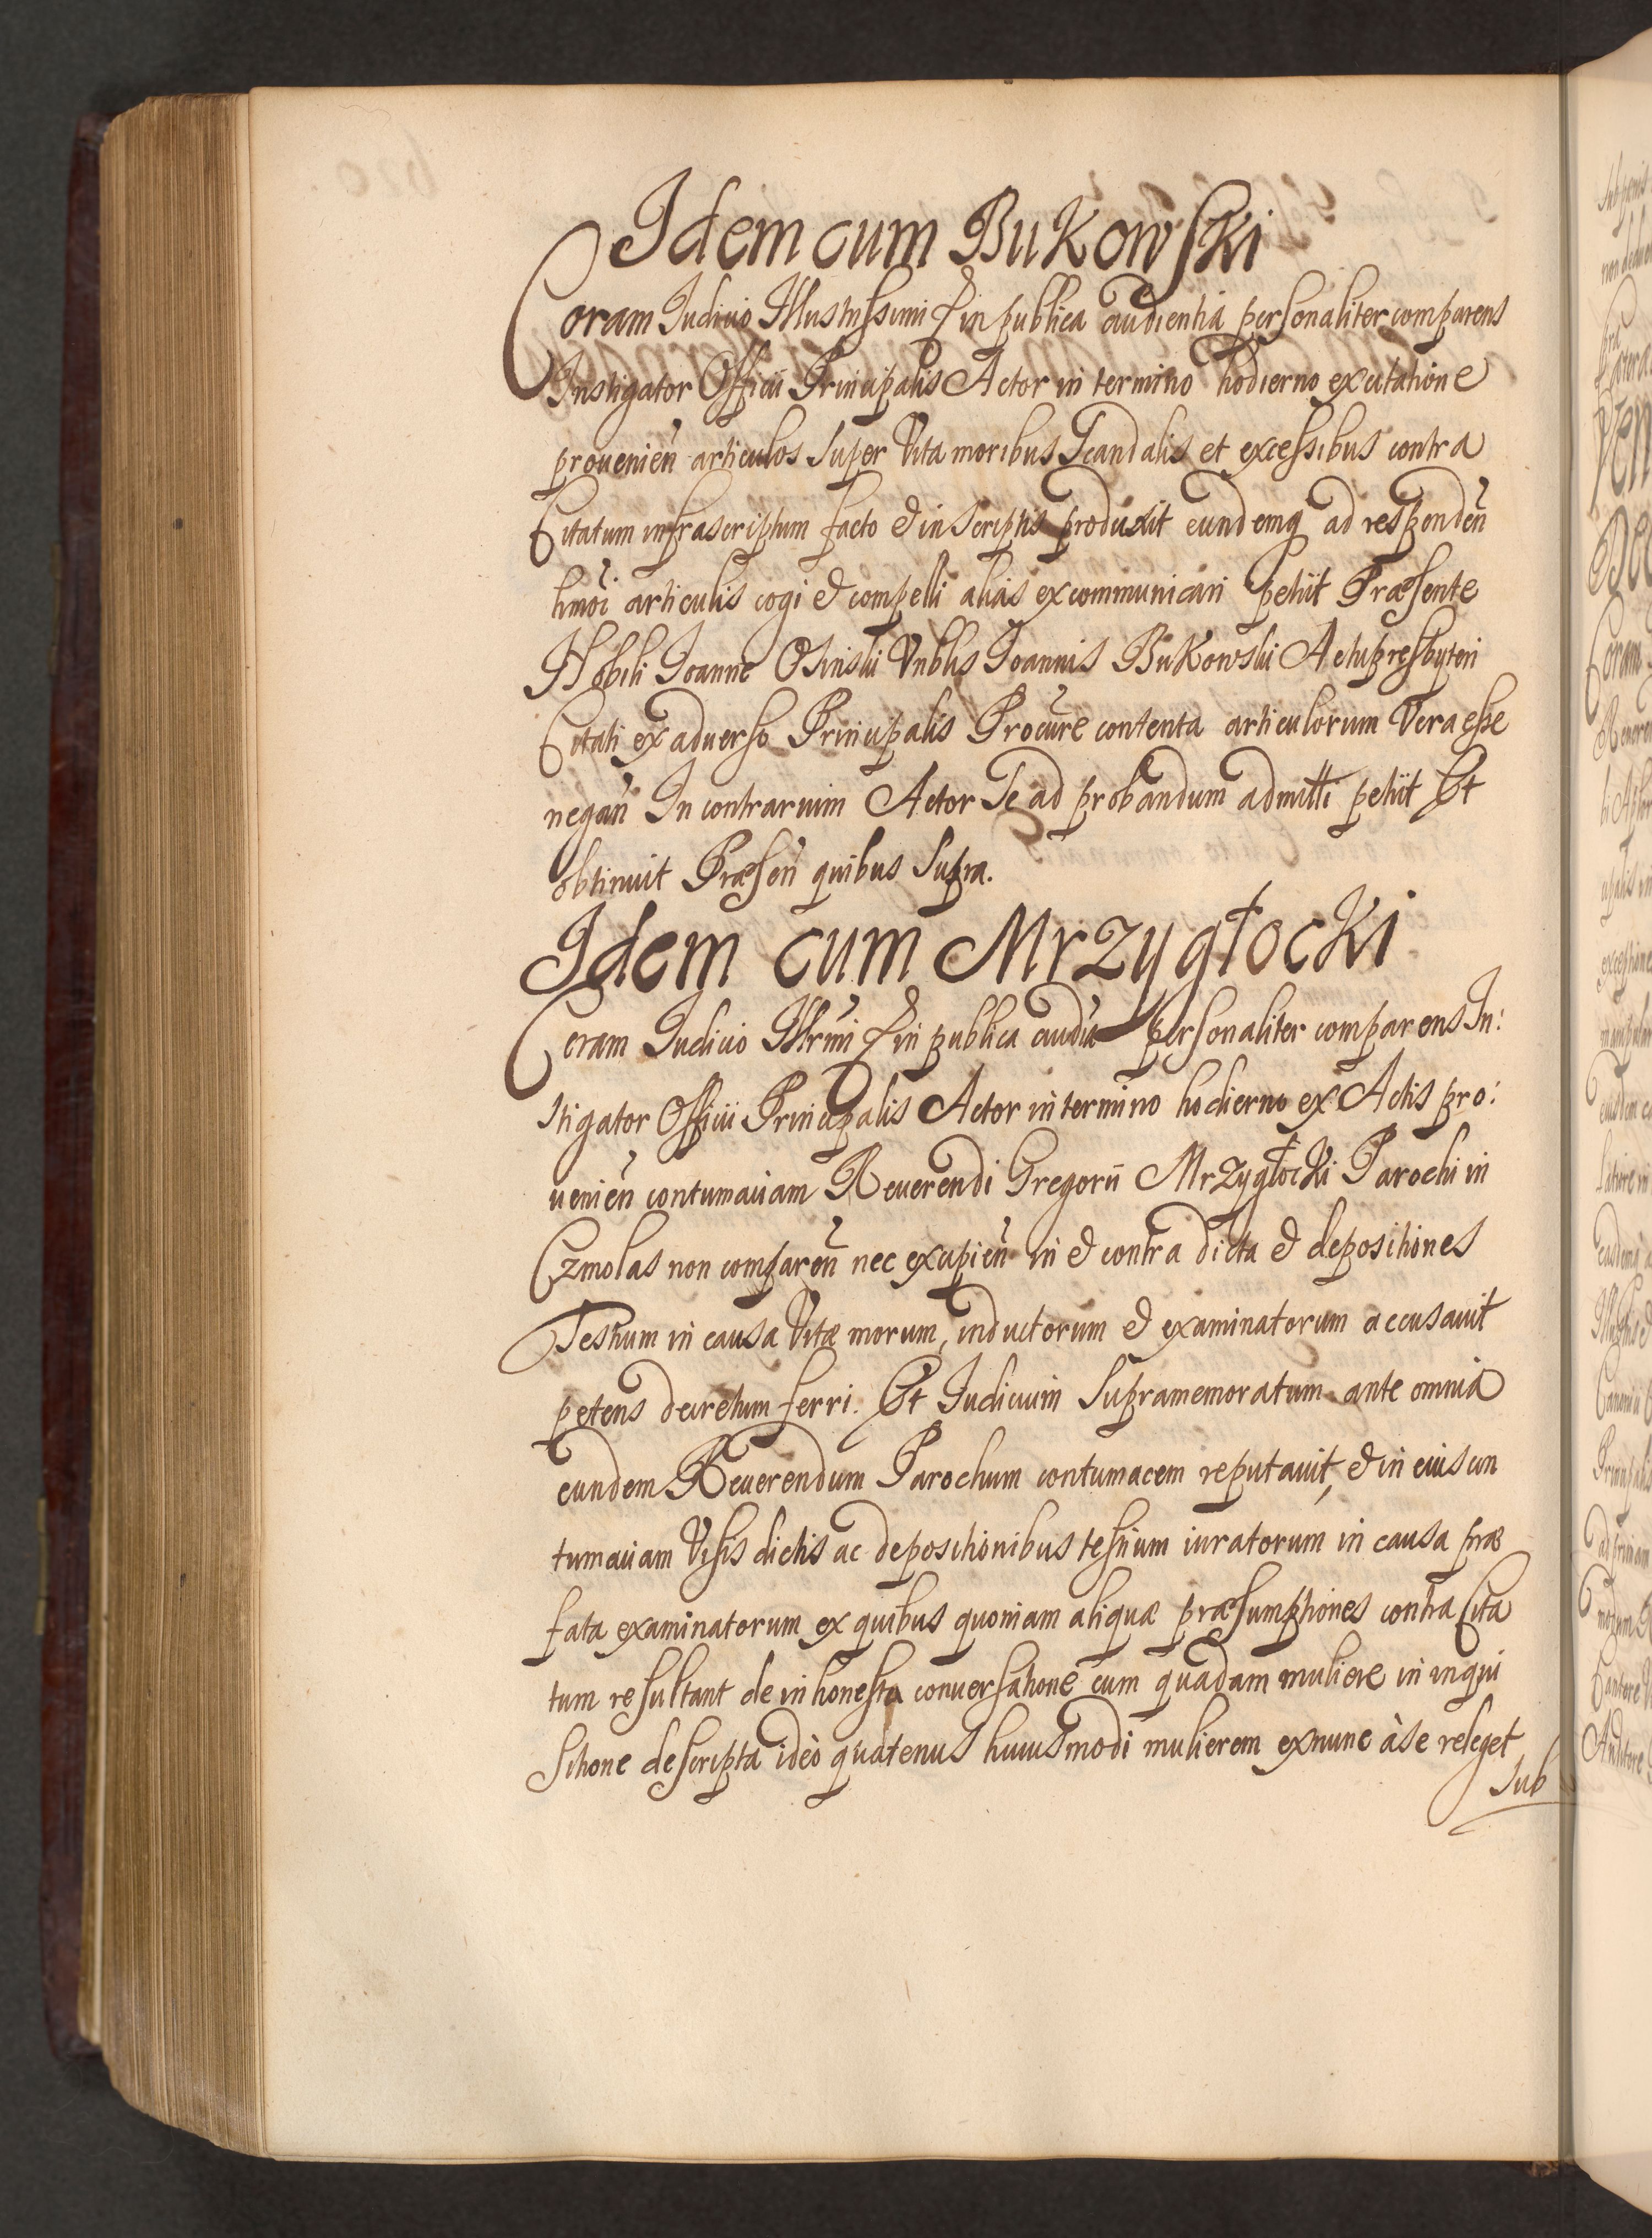 Idem cum Bukowski
Coram Iudicio Illustrissimi & in publica audientia personaliter comparens
Instigator Officii Principalis Actor in termino hodierno ex citatione
prouenieñ articulos super Vita moribus Scandalis et excessibus contra
Citatum infrascriptum facto & in scriptis produxit eundemq ad respondeñ
hmōi articulis cogi & compelli alias excommunicari petiit Præsente
Nobili Ioanne Osinski Vnblis Ioannis Bukowski Actupresbyteri
Citati ex aduerso Principalis Procūre contenta articulorum Vera esse
negañ In contrarium Actor Se ad probandum admitti petiit Et
obtinuit Præseñ quibus supra.
Idem cum Mrzygłocki
Coram Iudicio Illrmi & in publica audia personaliter comparens In:
stigator Officii Principalis Actor in termino hodierno ex Actis pro:
uenieñ contumaciam Reuerendi Gregorii Mrzygłocki Parochi in
Czmolas non compareñ nec excipieñ in & contra dicta & depositiones
Testium in causa Vitæ morum, inductorum & examinatorum accusauit
petens decretum ferri. Et Iudicium Supramemoratum ante omnia
eundem Reuerendum Parochum contumacem reputauit, & in eius con
tumaciam Visis dictis ac depositionibus testium iuratorum in causa præ
fata examinatorum ex quibus quoniam aliquæ præsumptiones contra Cita
tum resultant de inhonesta conuersatione cum quadam muliere in inqui
sitione descripta ideò quatenus huiusmodi mulierem exnunc à se releget
sub